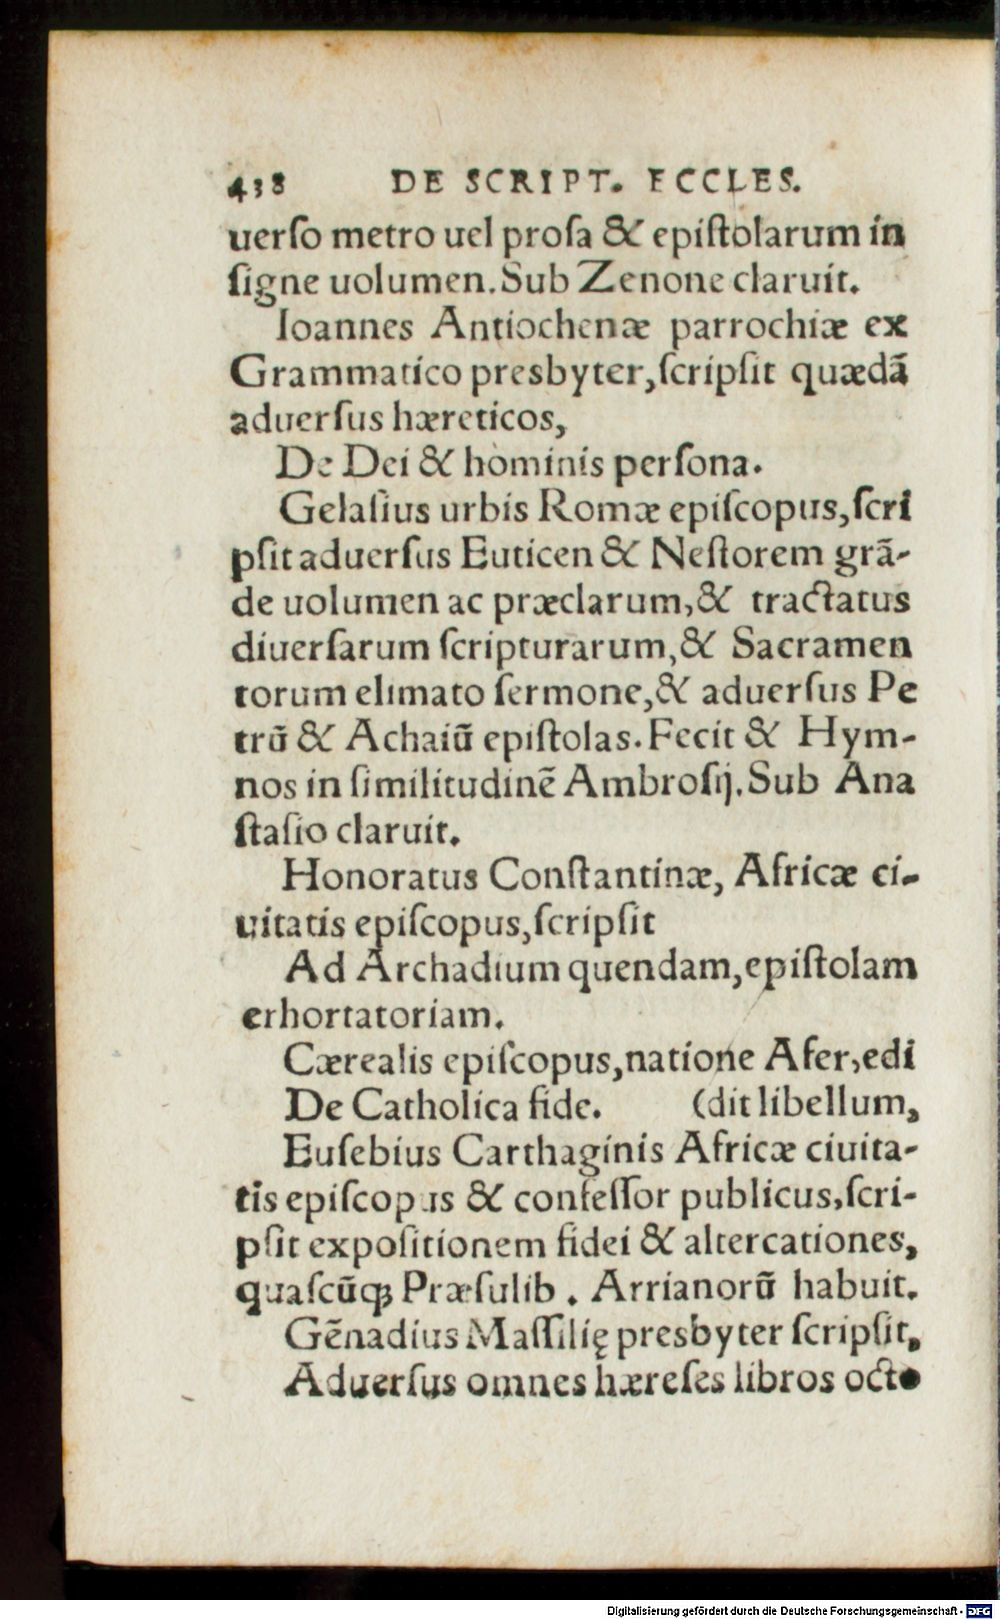 438 DE SCRIPT. ECCLES.
uerſo metro uel proſa & epiſtolarum in
ſigne uolumen. Sub Zenone claruit.
Ioannes Antiochenæ parrochiæ ex
Grammatico presbyter, ſcripſit quædā
aduerſus hæreticos,
De Dei & hominis perſona.
Gelaſius urbis Romæ epiſcopus, ſcri
pſit aduerſus Euticen & Neſtorem grā-
de uolumen ac præclarum, & tractatus
diuerſarum ſcripturarum, & Sacramen
torum elimato ſermone, & aduerſus Pe
trū & Achaiū epiſtolas. Fecit & Hym-
nos in ſimilitudinē Ambroſij. Sub Ana
ſtaſio claruit.
Honoratus Conſtantinæ, Africæ ci-
uitatis epiſcopus, ſcripſit
Ad Archadium quendam, epiſtolam
erhortatoriam.
Cærealis epiſcopus, natione Afer, edi
De Catholica fide. (dit libellum,
Euſebius Carthaginis Africæ ciuita-
tis epiſcopus & confeſſor publicus, ſcri-
pſit expoſitionem fidei & altercationes,
quaſcūqꝫ Præſulib. Arrianorū habuit.
Gēnadius Maſſilię presbyter ſcripſit,
Aduerſus omnes hæreſes libros octo
Digitalisierung gefördert durch die Deutsche Forschungsgemeinschaft - DFG